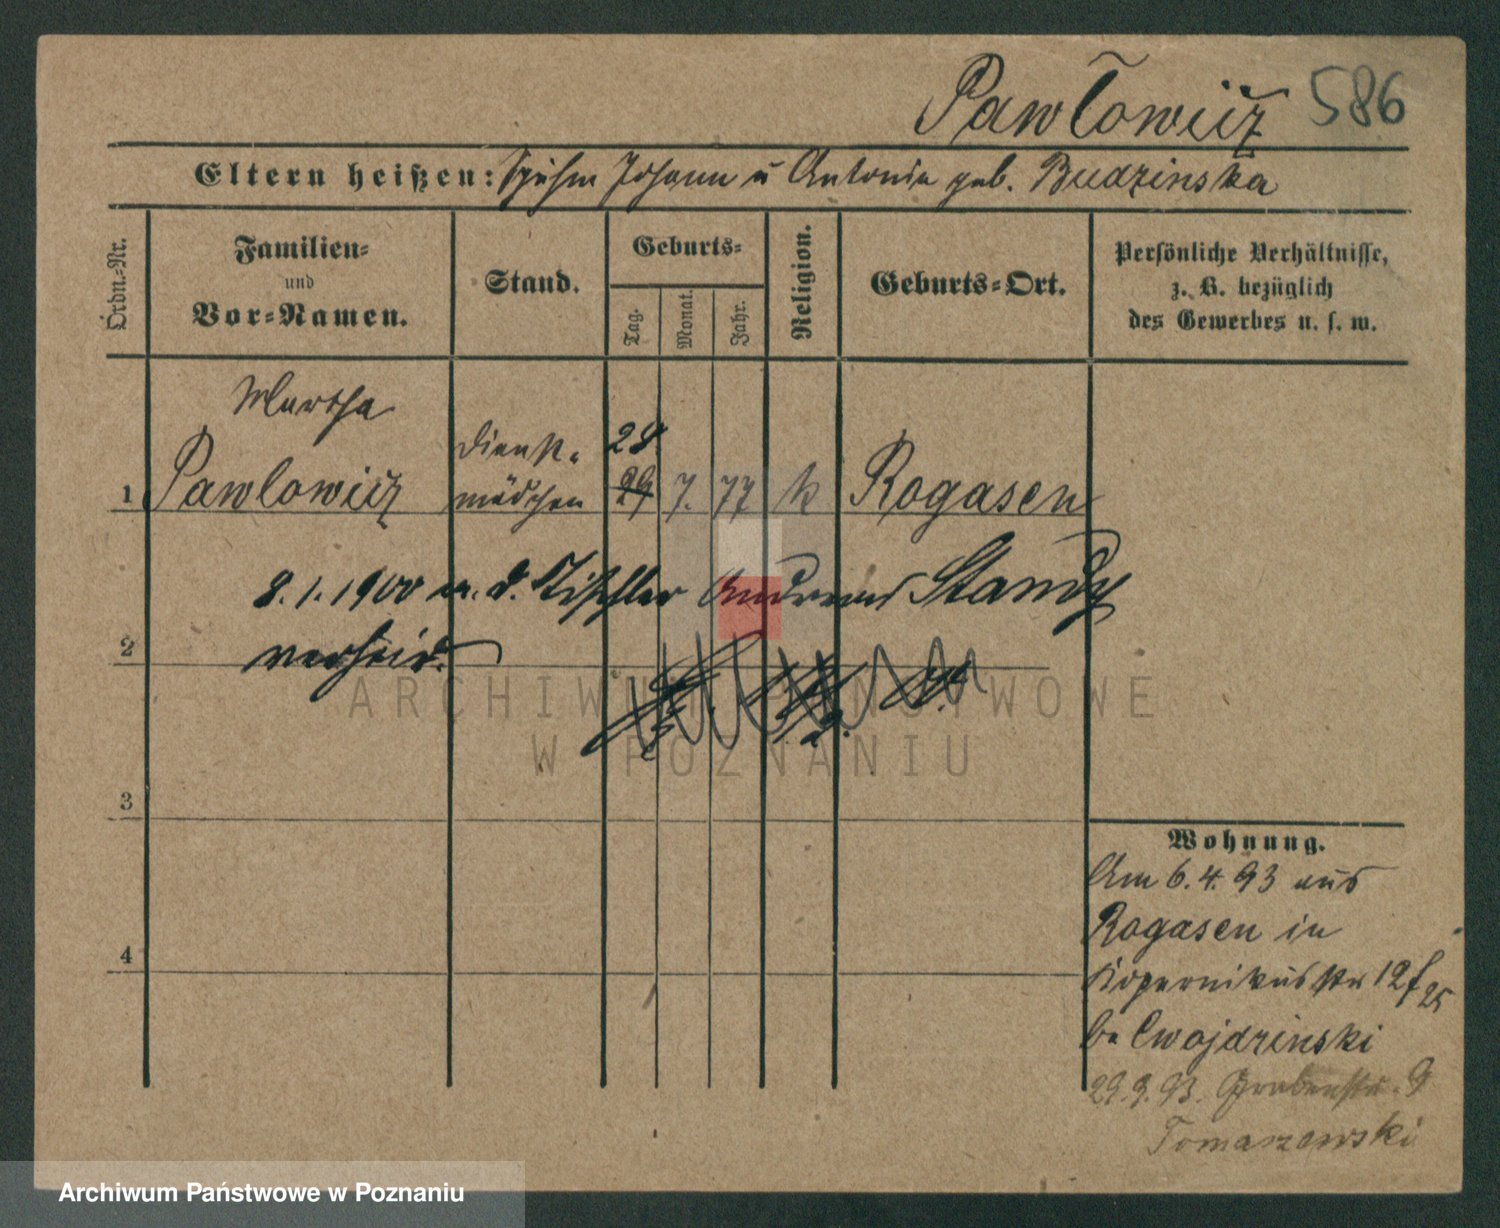 Pawłowicz 586
Eltern heißen: Johann u Antonia geb. Budzinska
Ordn.-Nr.
Familien-
und
Vor-Namen.
Stand.
Geburts-
Tag.
Monat.
Jahr.
Religion.
Geburts-Ort.
Persönliche Verhältnisse,
z. B. bezüglich
des Gewerbes u. s. w.
Martha
Dienst- 28
1 Pawlowicz mädchen 29 7. 77 k Rogasen
8.1.1900 m. d. Tischler Andreas Standy
2 verheir.
3
4
Wohnung.
Am 6.4.93 aus
Rogasen in
Kopernikusstr 12
b. Cwojdzinski
29.9.93. Grabenstr. 9
Tomaszewski
ARCHIWUM PAŃSTWOWE
W POZNANIU
Archiwum Państwowe w Poznaniu